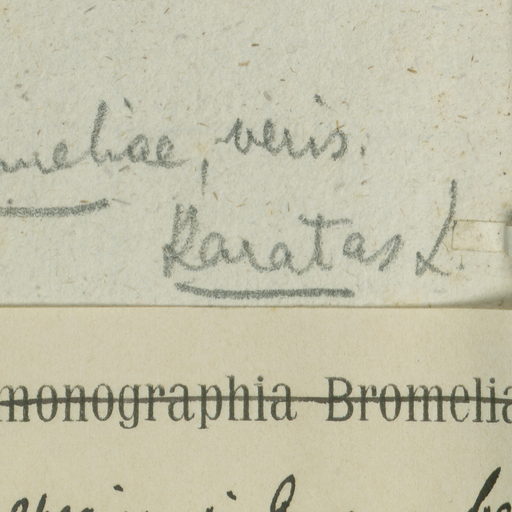 meliae, veris.
Karatas L.
monographia Bromelia